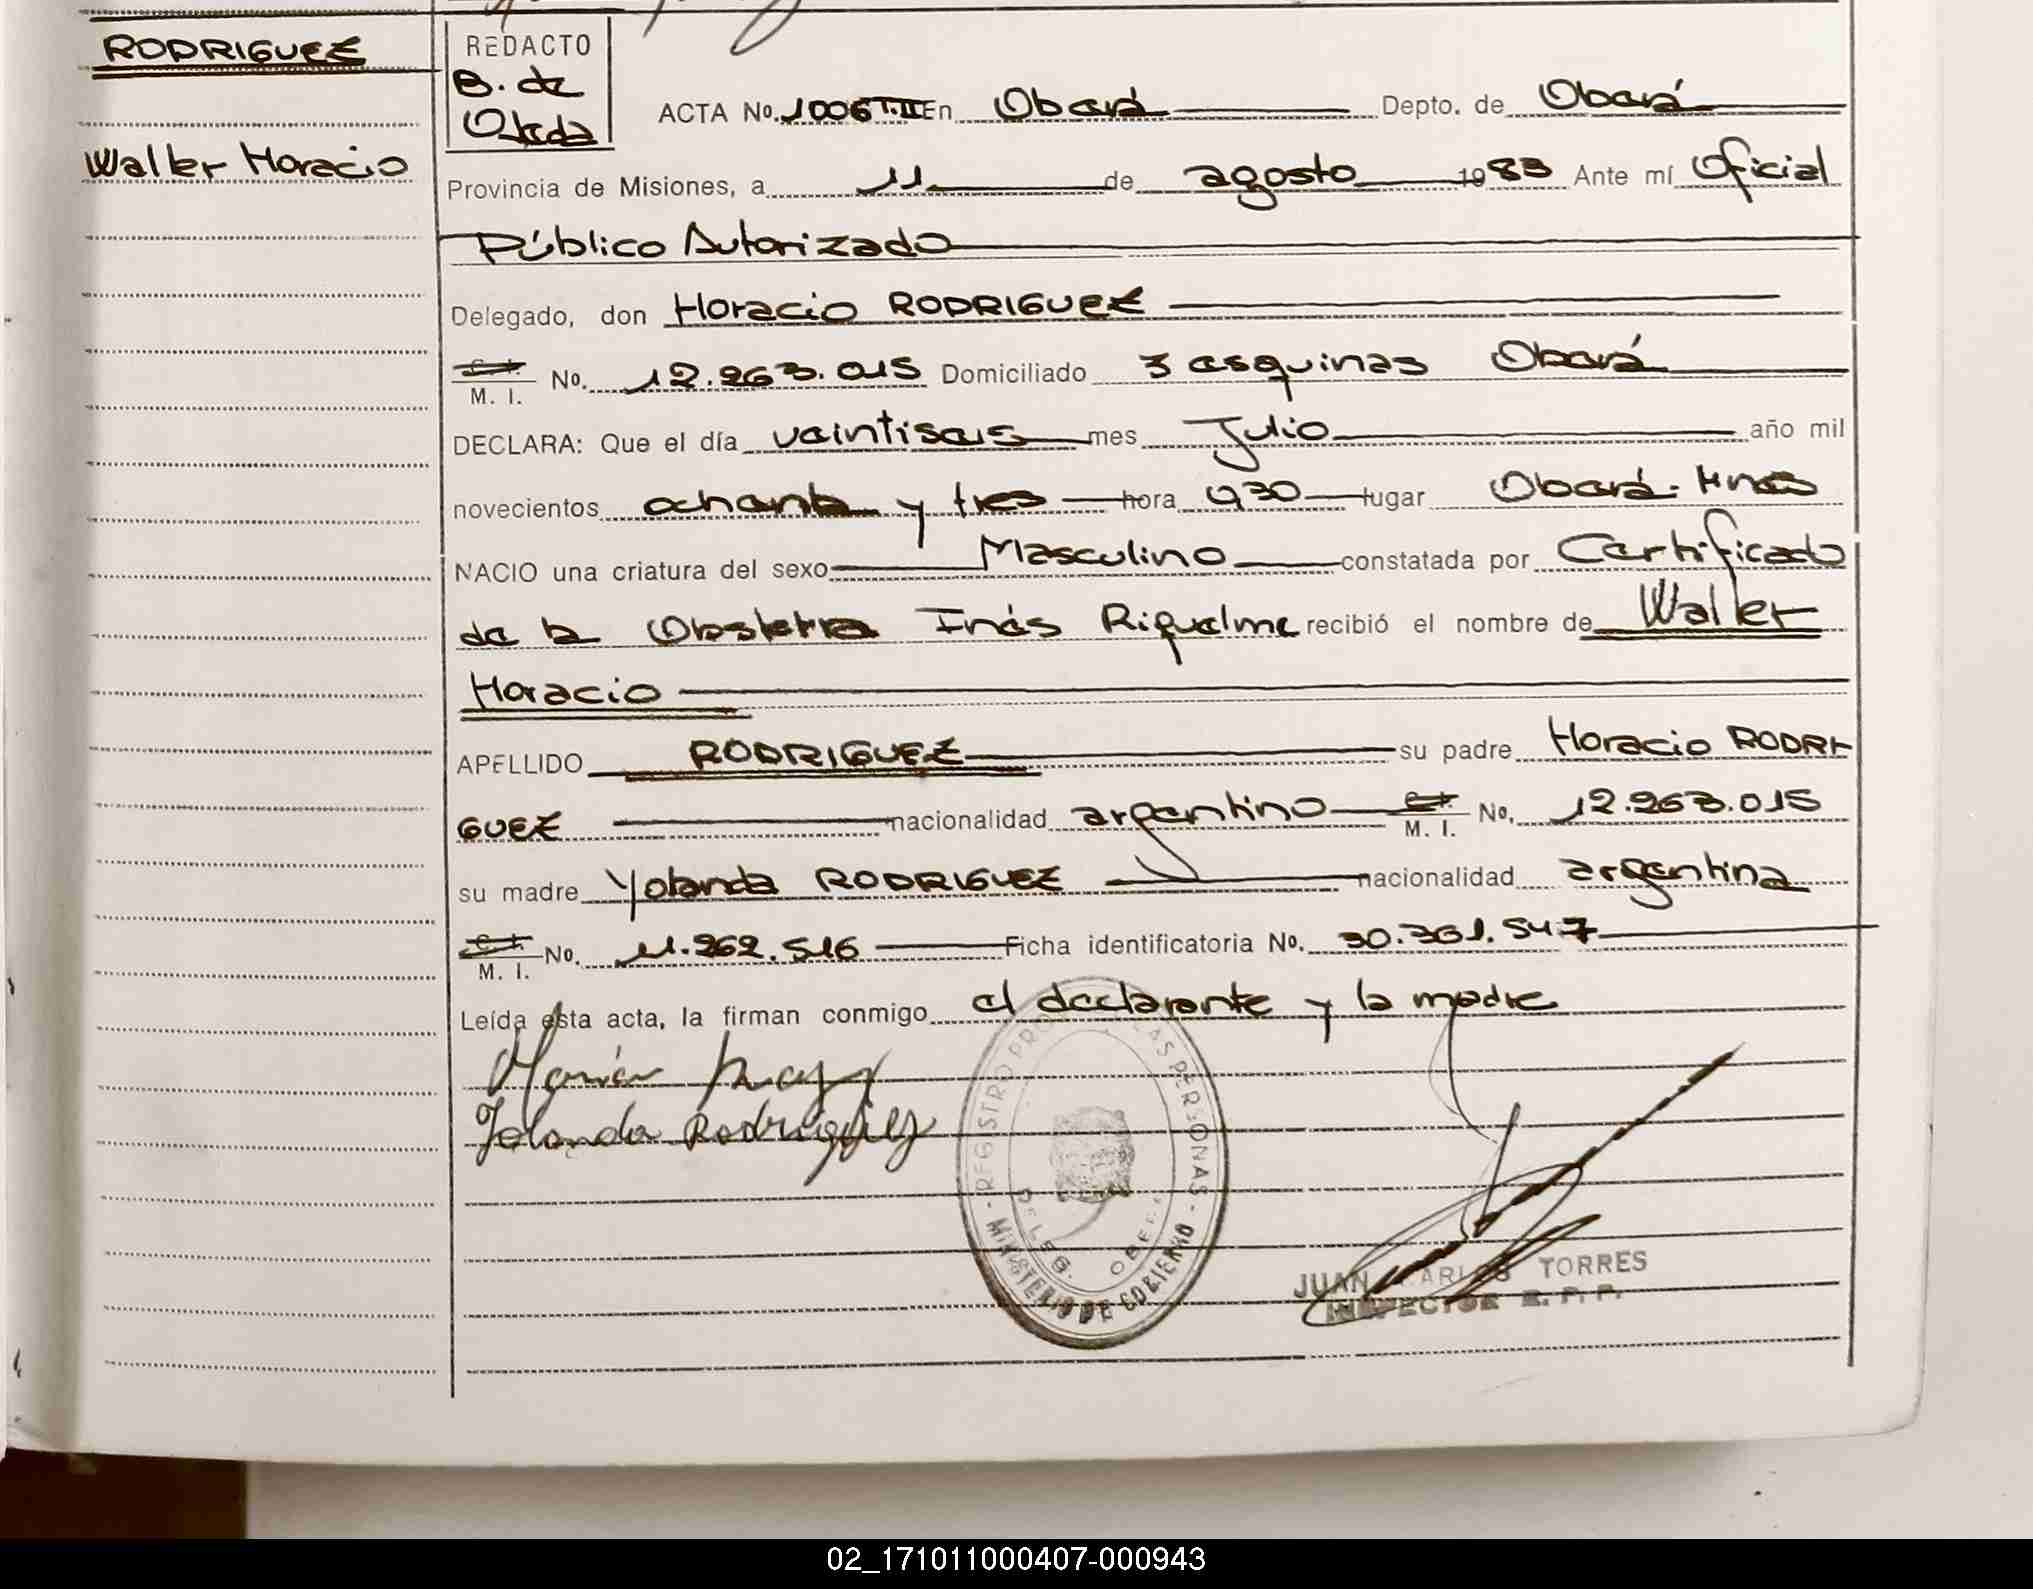 RODRIGUEZ
Walter Horacio
REDACTO
B. de
Ojeda
ACTA No. 1006 T.II En Oberá Depto. de Oberá
Provincia de Misiones, a 11 de agosto 1983 Ante mí Oficial
Público Autorizado
Delegado, don Horacio RODRIGUEZ
M. I. No. 12.263.015 Domiciliado 3 esquinas Oberá
DECLARA: Que el día veintiseis mes Julio año mil
novecientos ochenta y tres hora 9,30 lugar Oberá-Mnes
NACIO una criatura del sexo Masculino constatada por Certificado
de la Obstetra Inés Riquelme recibió el nombre de Walter
Horacio
APELLIDO RODRIGUEZ su padre Horacio RODRI-
GUEZ nacionalidad argentino M. I. No. 12.263.015
su madre Yolanda RODRIGUEZ nacionalidad argentina
M. I. No. 11.262.516 Ficha identificatoria No. 30.361.547
Leída esta acta, la firman conmigo el declarante y la madre
Yolanda Rodriguez
REGISTRO PROV LAS PERSONAS
DELEG. OBERA
MINISTERIO DE GOBIERNO
JUAN CARLOS TORRES
INSPECTOR R. P. P.
02_171011000407-000943